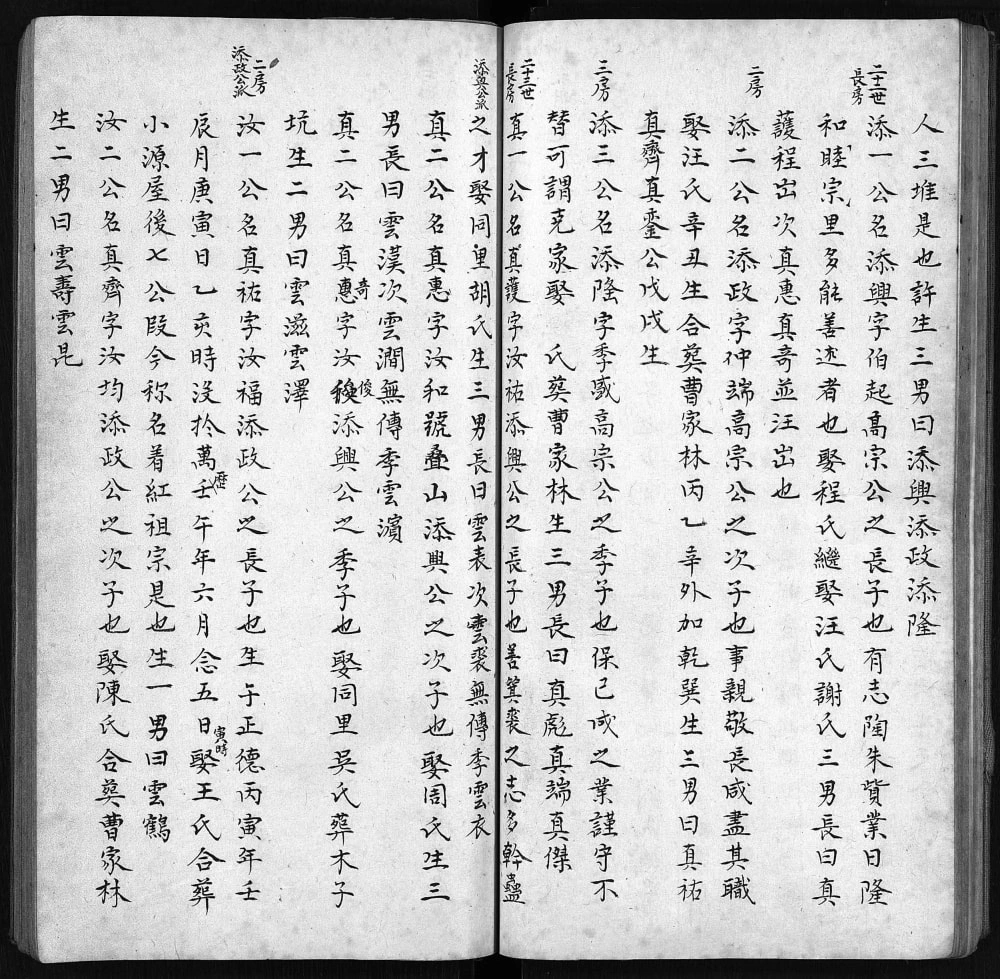 人三堆是也許生三男曰添興添政添隆
二十二世
長房
添一公名添興字伯起髙宗公之長子也有志陶朱貲業日隆
和睦宗里多能善述者也娶程氏繼娶汪氏謝氏三男長曰真
護程出次真惠真奇並汪出也
二房
添二公名添政字仲端高宗公之次子也事親敬長咸盡其職
娶汪氏辛丑生合𦵏曹家林丙乙辛外加乾巽生三男曰真祐
真齊真銮公戊戌生
三房
添三公名添隆字季盛高宗公之季子也保已成之業謹守不
替可謂克家娶 氏𦵏曹家林生三男長曰真彪真端真傑
二十三世
長房
真一公名真護字汝祐添興公之長子也善箕裘之志多幹蠱
添興公派
之才娶同里胡氏生三男長曰雲表次雲裘無傳季雲衣
真二公名真惠字汝和號叠山添興公之次子也娶周氏生三
男長曰雲漢次雲澗無傳季雲濱
真二公名真惠奇字汝俊添興公之季子也娶同里吳氏葬木子
坑生二男曰雲滋雲澤
二房
添政公派
汝一公名真祐字汝福添政公之長子也生于正德丙寅年壬
辰月庚寅日乙亥時沒於萬歷壬午年六月念五日寅時娶王氏合葬
小源屋後七公段今称名着紅祖宗是也生一男曰雲鶴
汝二公名真齊字汝均添政公之次子也娶陳氏合𦵏曹家林
生二男曰雲壽雲昆